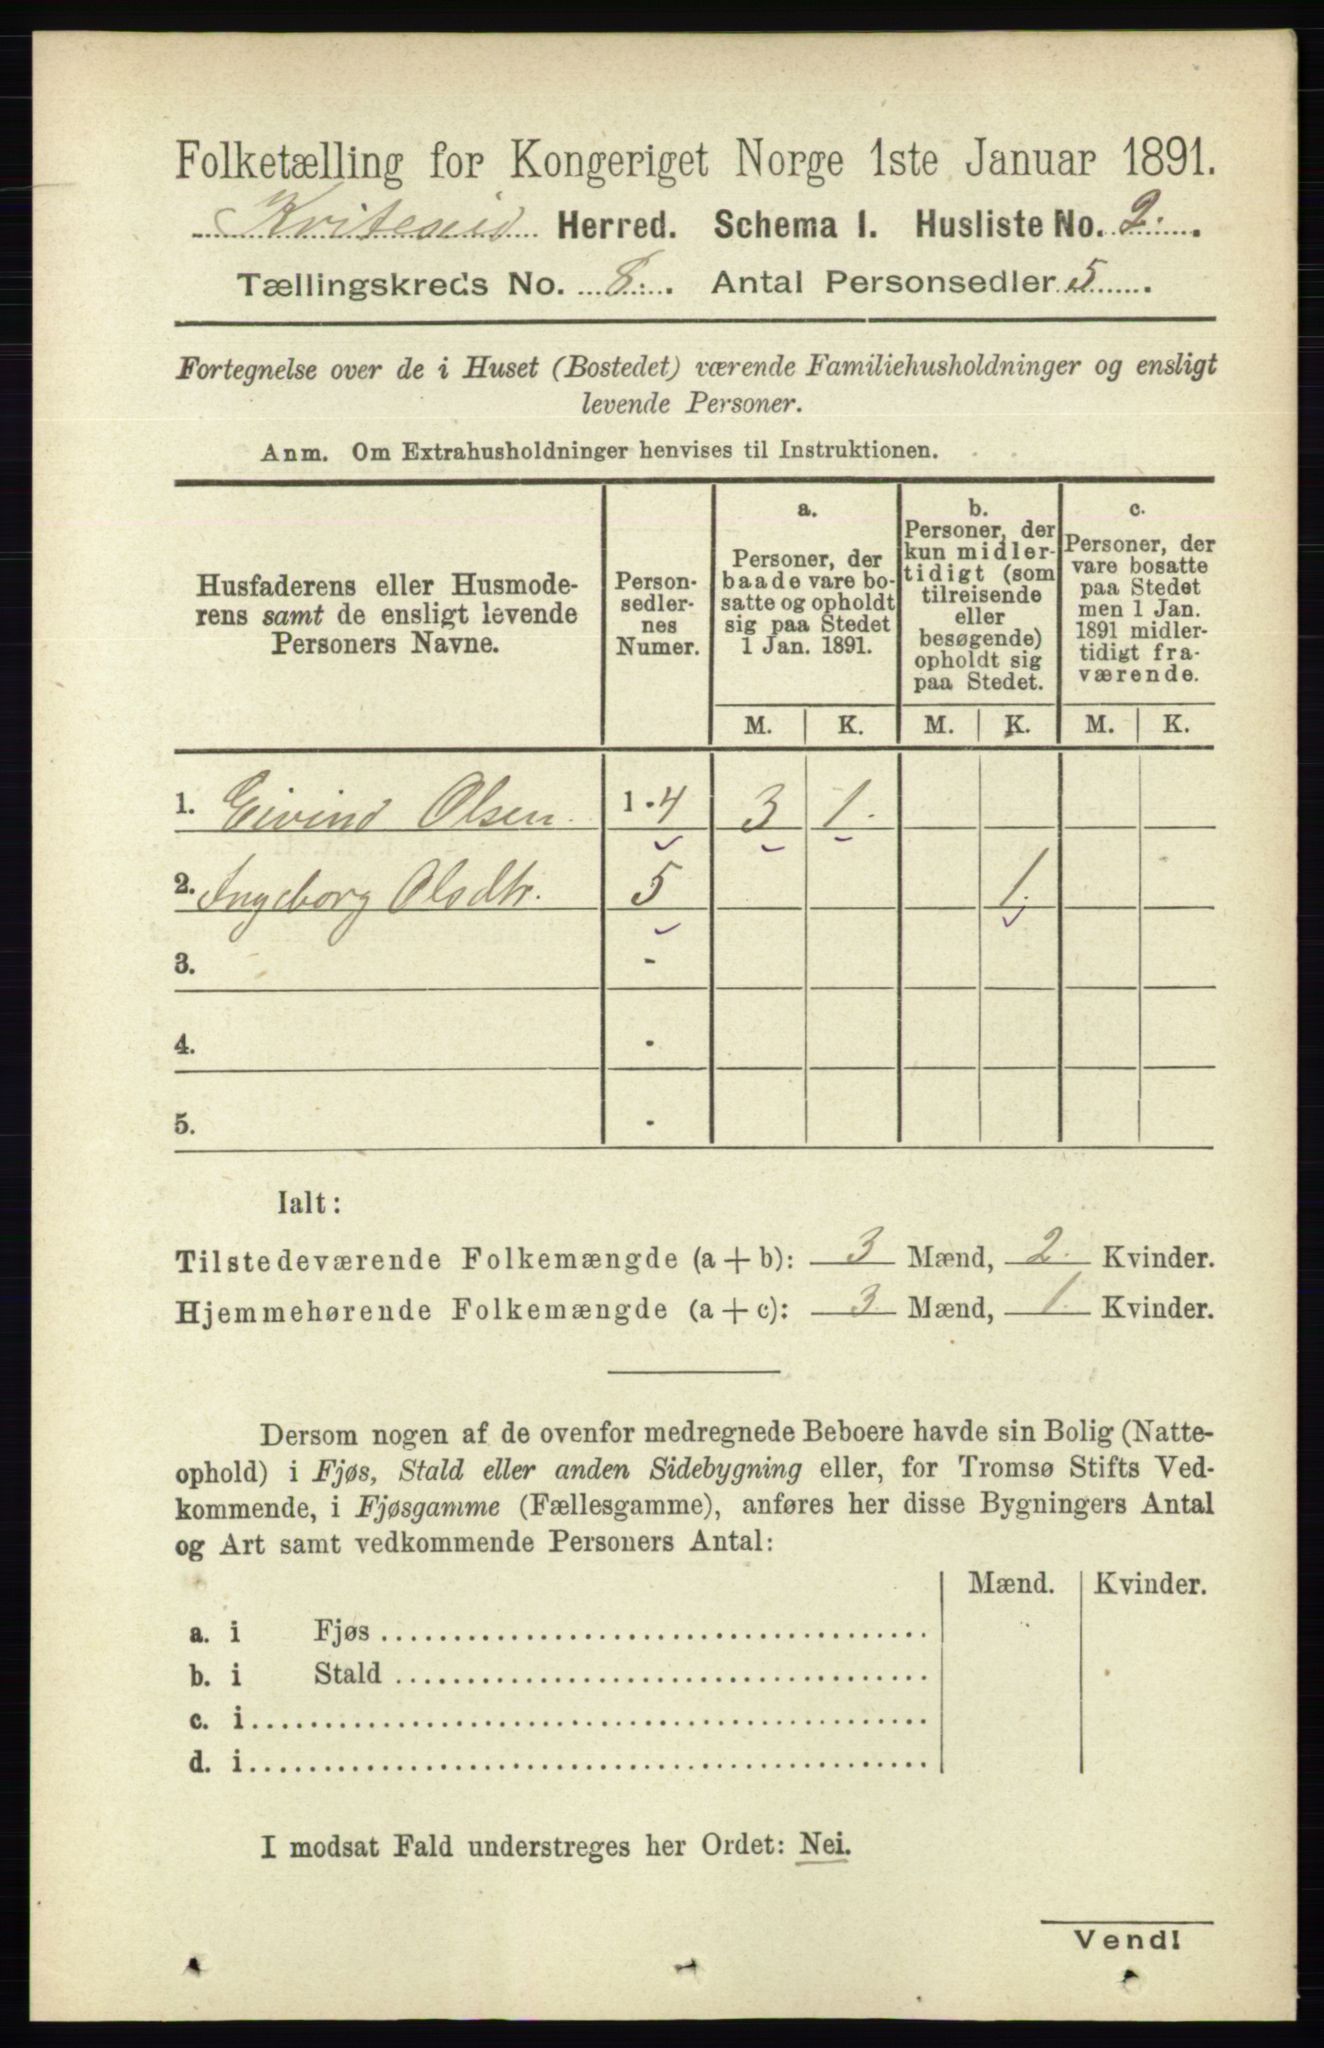 Folketælling for Kongeriget Norge 1ste Januar 1891.
Kviteseid Herred. Schema I. Husliste No. 2.
Tællingskreds No. 8. Antal Personsedler 5.
Fortegnelse over de i Huset (Bostedet) værende Familiehusholdninger og ensligt
levende Personer.
Anm. Om Extrahusholdninger henvises til Instruktionen.
Husfaderens eller Husmode-
rens samt de ensligt levende
Personers Navne.
Person-
sedler-
nes
Numer.
a.
Personer, der
baade vare bo-
satte og opholdt
sig paa Stedet
1 Jan. 1891.
b.
Personer, der
kun midler-
tidigt (som
tilreisende
eller
besøgende)
opholdt sig
paa Stedet.
c.
Personer, der
vare bosatte
paa Stedet
men 1 Jan.
1891 midler-
tidigt fra-
værende.
M. K. M. K. M. K.
1. Eivind Olsen. 1-4 3 1.
2. Ingeborg Olsdtr. 5 1.
3. -
4. -
5. -
Ialt:
Tilstedeværende Folkemængde (a + b): 3 Mænd, 2. Kvinder.
Hjemmehørende Folkemængde (a + c): 3 Mænd, 1. Kvinder.
Dersom nogen af de ovenfor medregnede Beboere havde sin Bolig (Natte-
ophold) i Fjøs, Stald eller anden Sidebygning eller, for Tromsø Stifts Ved-
kommende, i Fjøsgamme (Fællesgamme), anføres her disse Bygningers Antal
og Art samt vedkommende Personers Antal:
Mænd. Kvinder.
a. i Fjøs
b. i Stald
c. i
d. i
I modsat Fald understreges her Ordet: Nei.
Vend!